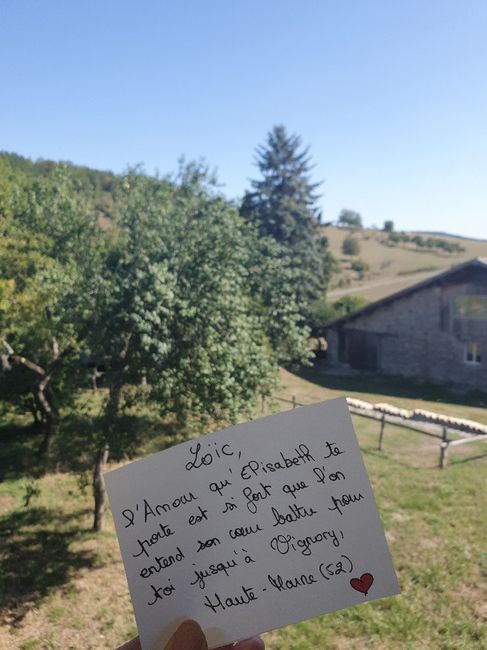 Loïc,
l'Amour qu'Elisabeth te
porte est si fort que l'on
entend son cœur battre pour
toi jusqu'à Vignory,
Haute-Marne (52)